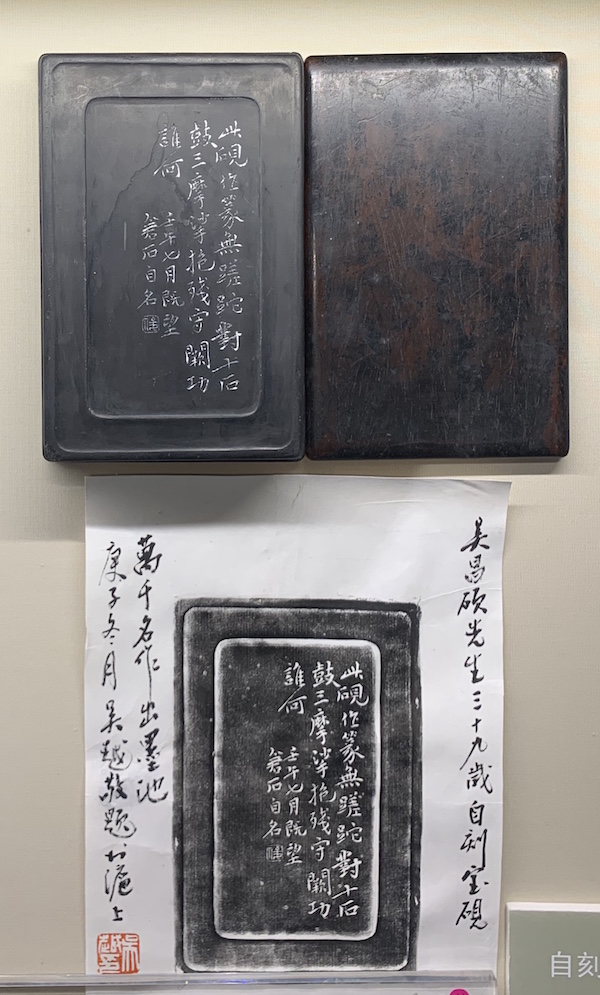 此硯作篆無蹉跎對十石
鼓三摩挲抱殘守闕功
誰何
壬午七月既望
倉石自名
吴昌碩先生三十九歲自刻宝硯
此硯作篆無蹉跎對十石
鼓三摩挲抱殘守闕功
誰何
壬午七月既望
倉石自名
萬千名作出墨池
庚子冬月吴越敬題於滬上
自刻